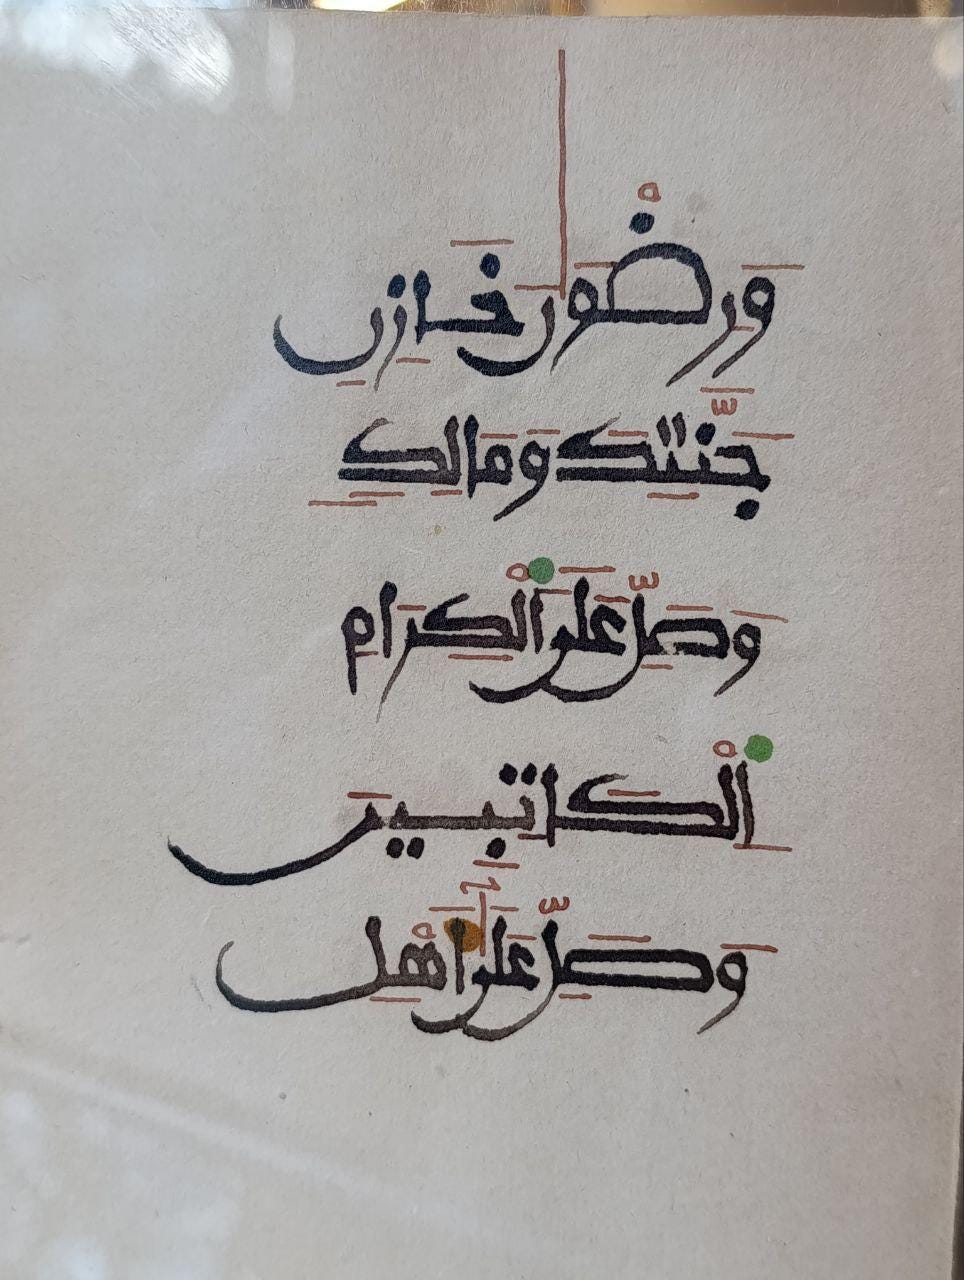 وَرَضْوَانَ خَازِنِ
جَنَّتِكَ وَمَالِكٍ
وَصَلِّ عَلَى الْكِرَامِ
الْكَاتِبِينَ
وَصَلِّ عَلَى أَهْلِ